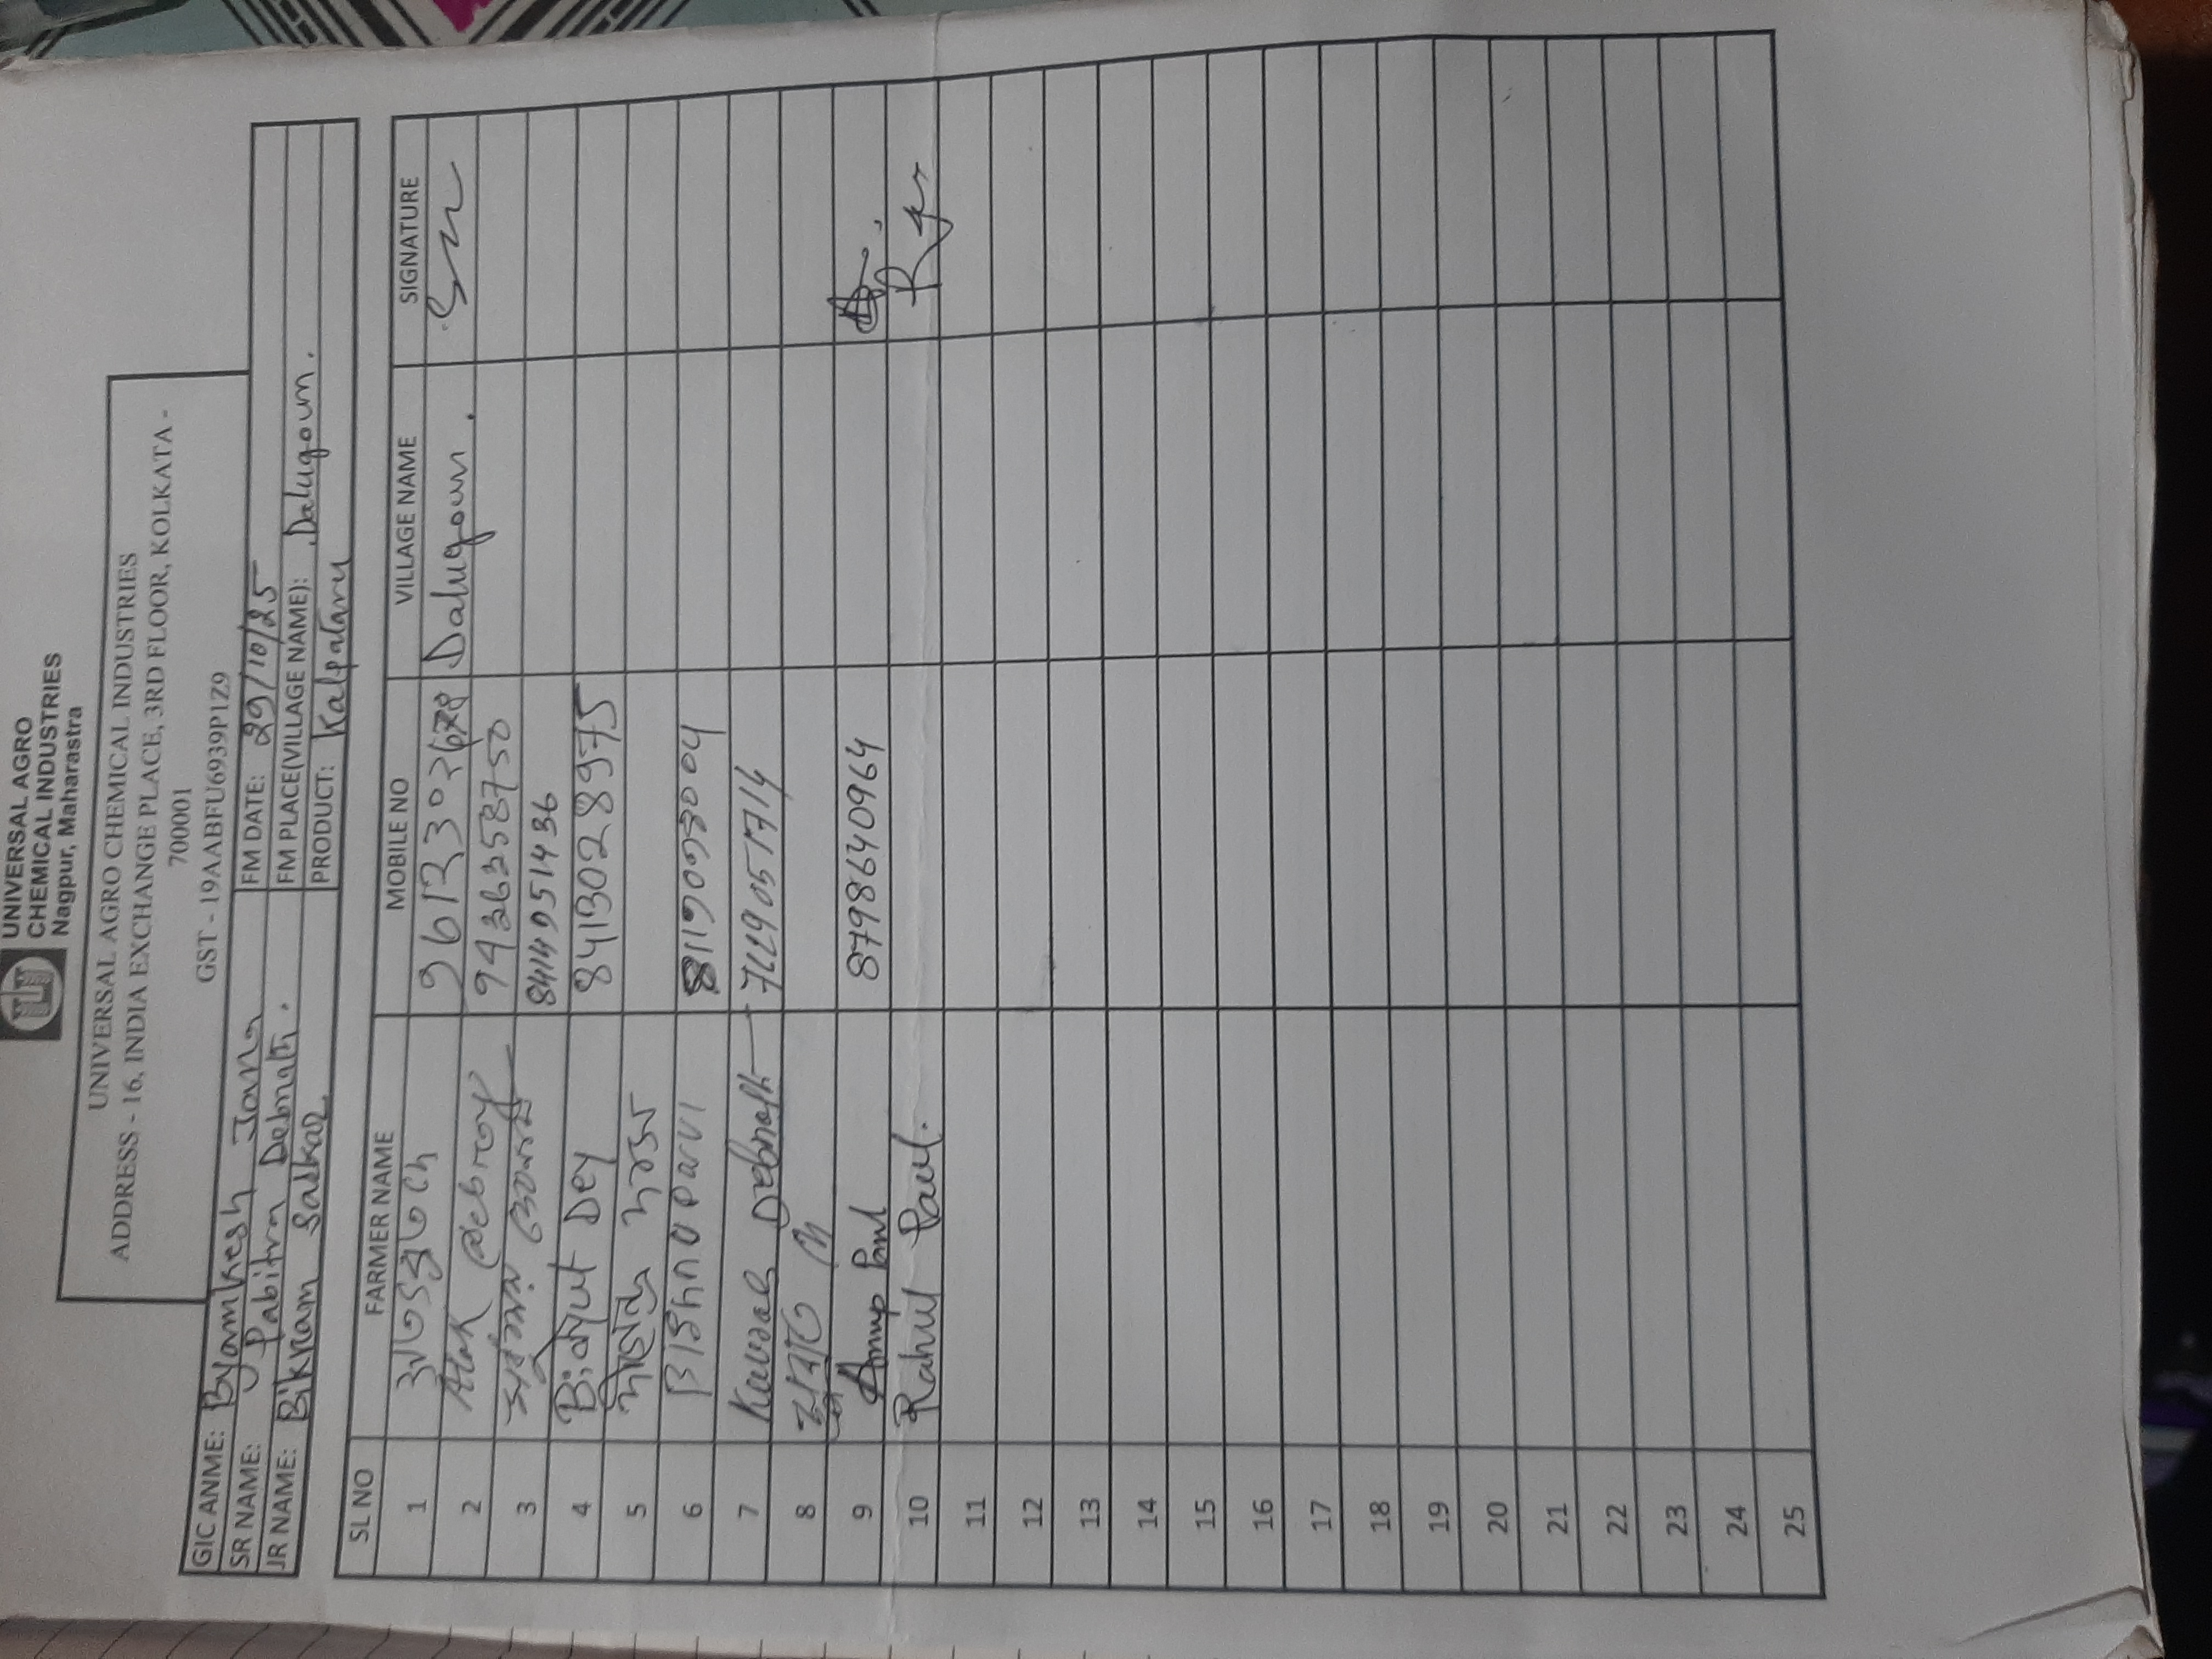 UNIVERSAL AGRO
CHEMICAL INDUSTRIES
Nagpur, Maharastra
UNIVERSAL AGRO CHEMICAL INDUSTRIES
ADDRESS - 16, INDIA EXCHANGE PLACE, 3RD FLOOR, KOLKATA -
700001
GST - 19AABFU6939P1Z9
GIC ANME: Byomkesh Jana FM DATE: 29/10/25
SR NAME: Pabitra Debnath. FM PLACE(VILLAGE NAME): Dalugoun.
JR NAME: Bikram Salkar PRODUCT: Kalpataru
SL NO FARMER NAME MOBILE NO VILLAGE NAME SIGNATURE
1 Dalugoun.
2 9436358750
3 8414951436
4 Bidyut Dey 8413028975
5
6
7 Debnath
8
9 Anup Paul 8798640964
10 Rahul Paul.
11
12
13
14
15
16
17
18
19
20
21
22
23
24
25